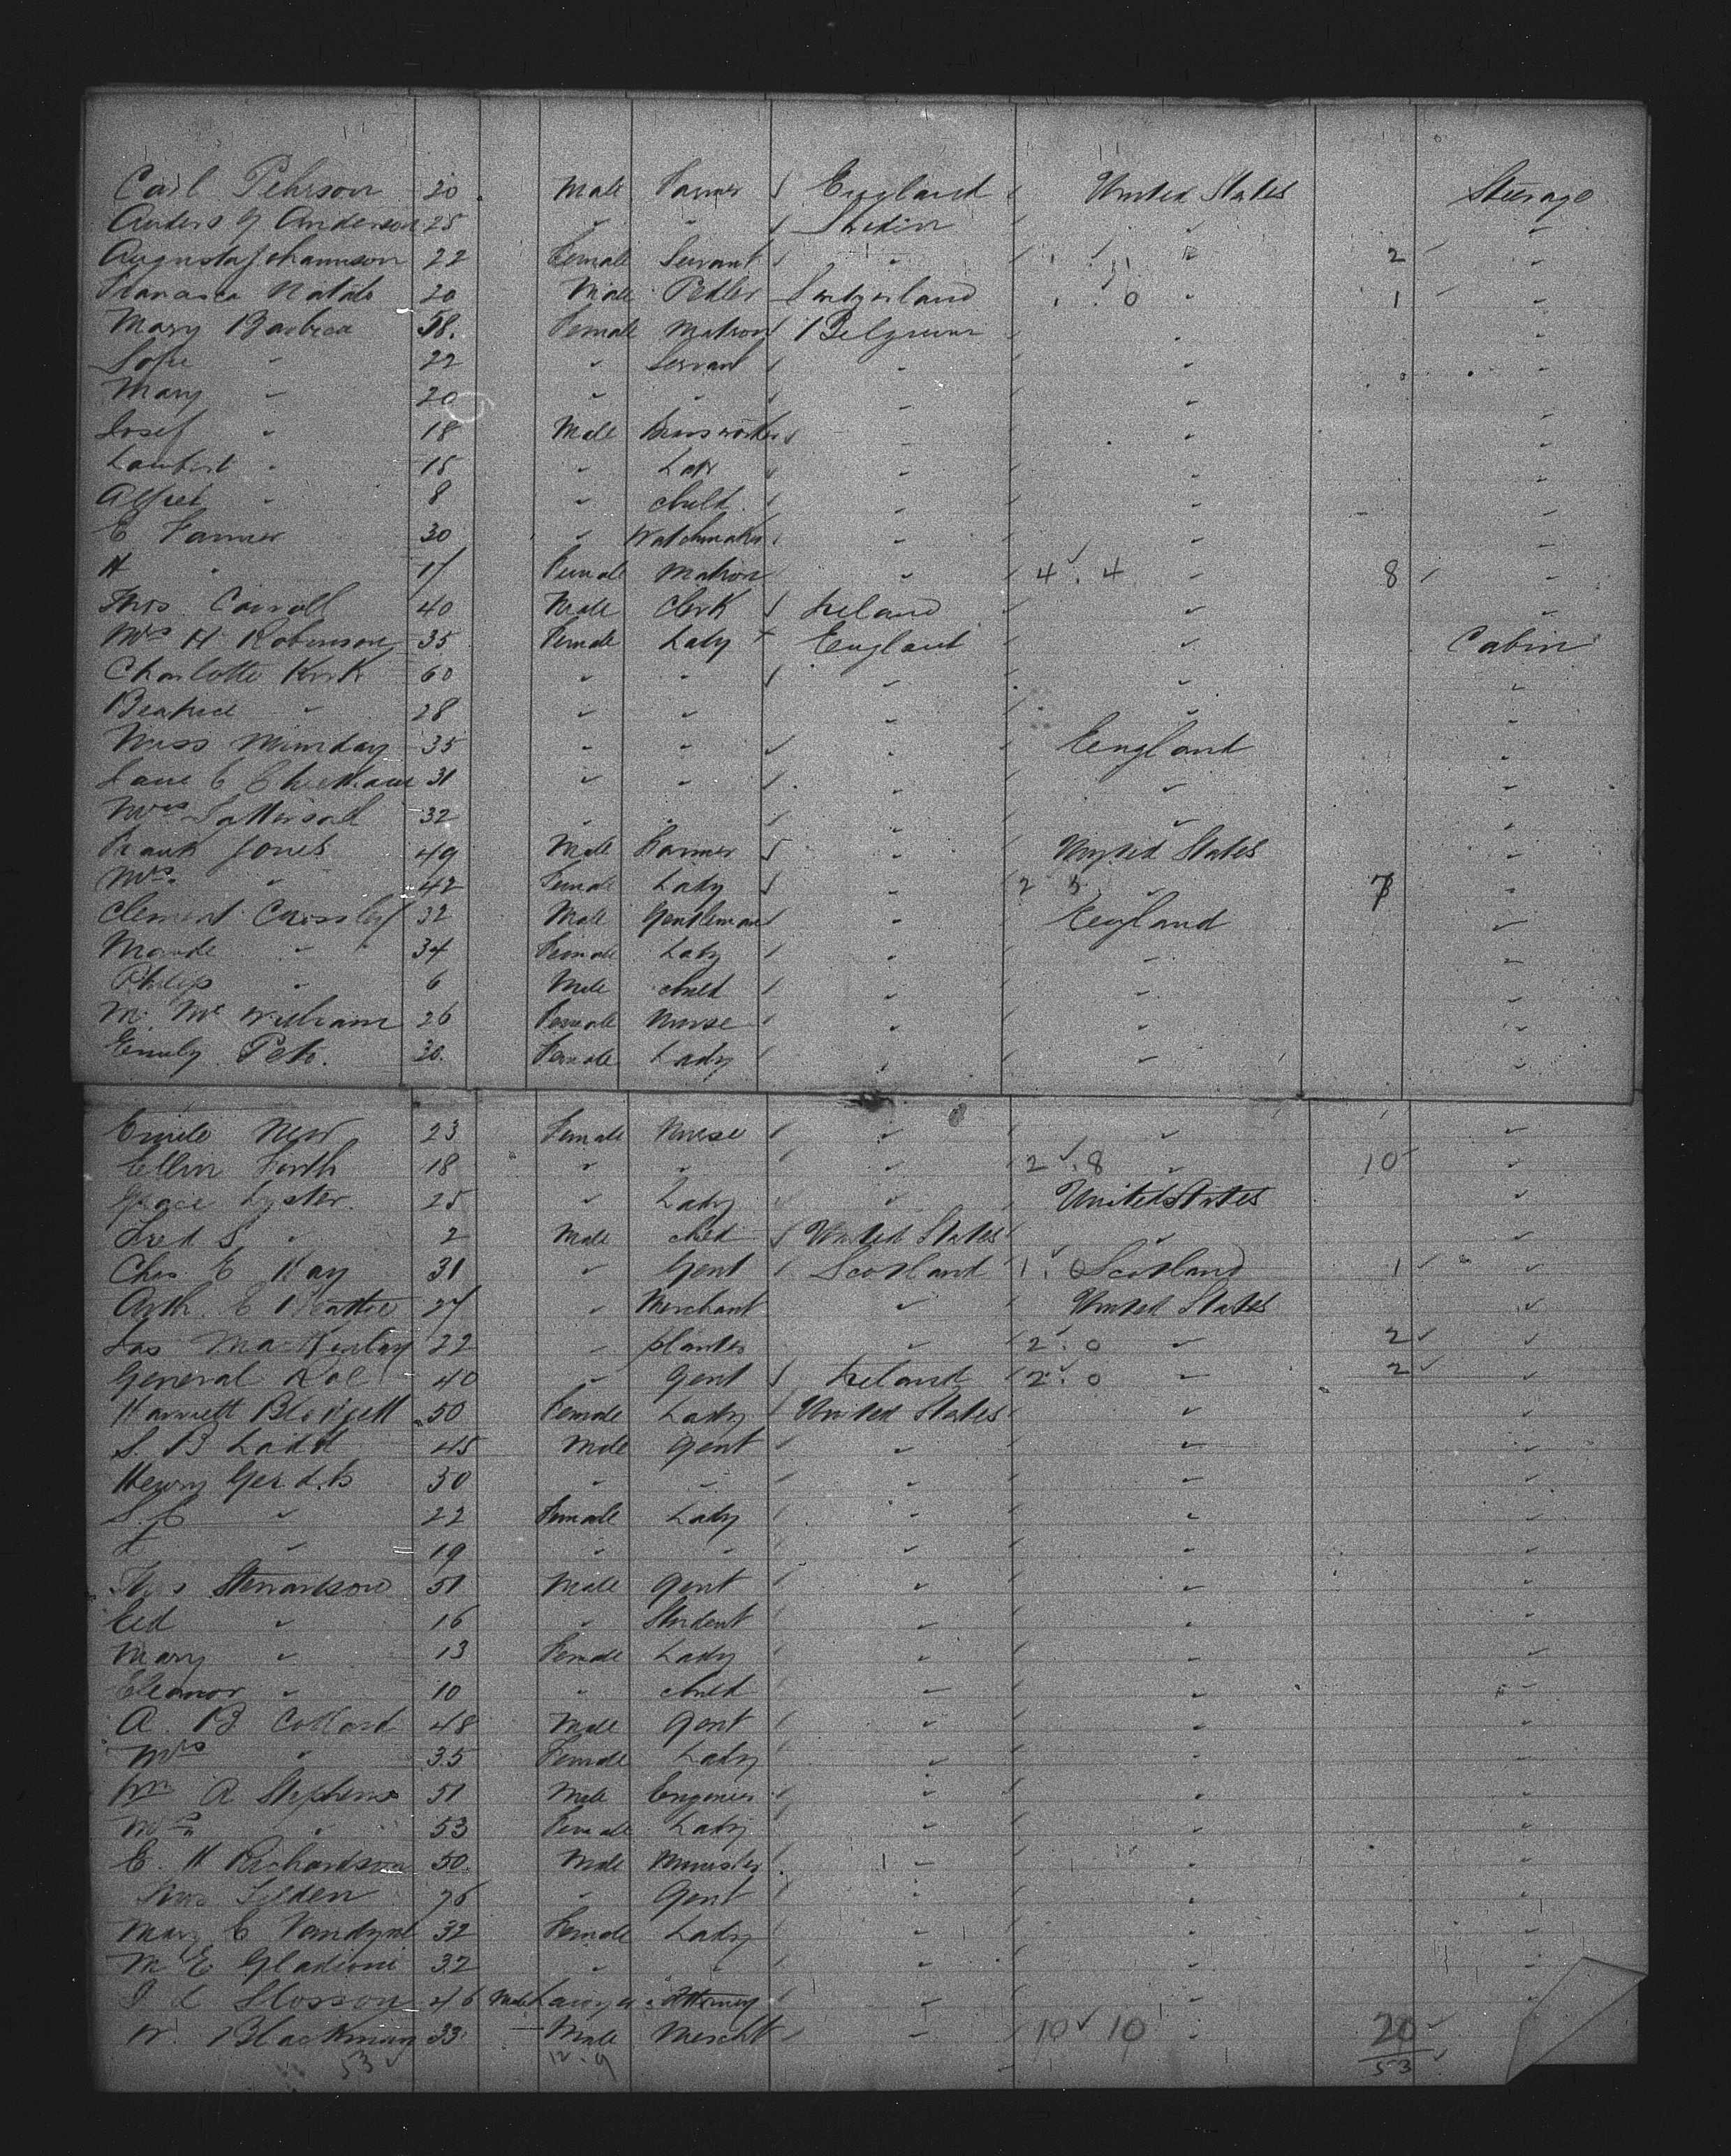 Carl Pehrson 20 Male Farmer England United States Steerage
Anders G Anderson 25 " " Sweden " "
Augusta Johannson 22 Female Servant " " 2 "
Natale 20 Male Pedler Switzerland 1 . 0 " 1 "
Mary 58. Female Matron Belgium " "
Sofie " 22 " Servant " " "
Mary " 20 " " " " "
Josef " 18 Male " " "
Lambert " 15 " " " "
Alfred " 8 " child " " "
E Farmer 30 " Watchmaker " " "
H " 17 Female Matron " 4 . 4 " 8 "
Thos. Carroll 40 Male Clerk Ireland " "
Mrs H Robinson 35 Female Lady England " Cabin
Charlotte Kirk 60 " " " " "
Beatrice " 28 " " " " "
Miss 35 " " " England "
Jane E 31 " " " " "
Mrs Tattersall 32 " " " " "
Frank Jones 49 Male Farmer " United States "
Mrs. " 42 Female Lady " 2 5 " 7 "
Clement Crossley 32 Male Gentleman " England "
Maude " 34 Female Lady " " "
Philip " 6 Male child " " "
M. Mc William 26 Female Nurse " " "
Emily Pete. 30. Female Lady " " "
Emile New 23 Female Nurse " " "
Ellin Forth 18 " " " 2 . 8 " 10 "
Grace Lyster. 25 " Lady " United States "
Fred S " 2 Male child United States " "
Chas. E Kay 31 " Gent Scotland 1 . 0 Scotland 1 "
Arth. E Beattie 27 " Merchant " United States "
Jas MacKinlay 22 " planter " 2 . 0 " 2 "
General 40 " Gent Ireland 2 . 0 " 2 "
Harriett Blodgett 50 Female Lady United States " "
S. B Ladd 45 Male Gent " " "
Henry 30 " " " " "
S. E " 22 Female Lady " " "
" 19 " " " " "
Thos Stewardson 51 Male Gent " " "
Ed " 16 " Student " " "
Mary " 13 Female Lady " " "
Eleanor " 10 " child " " "
A. B Collard 48 Male Gent " " "
Mrs " 35 Female Lady " " "
Wm A Stephens 51 Male Engineer " " "
Mrs " 53 Female Lady " " "
E. H Richardson 50. Male Minister " " "
Tilden 76 " Gent " " "
Mary E Vandyne 32 Female Lady " " "
M E 32 " " " " "
Slosson 46 Male Lawyer Attorney " " "
W. Blackman 33 Male Mercht " 10 10 " 20 "
53 12 . 9 53